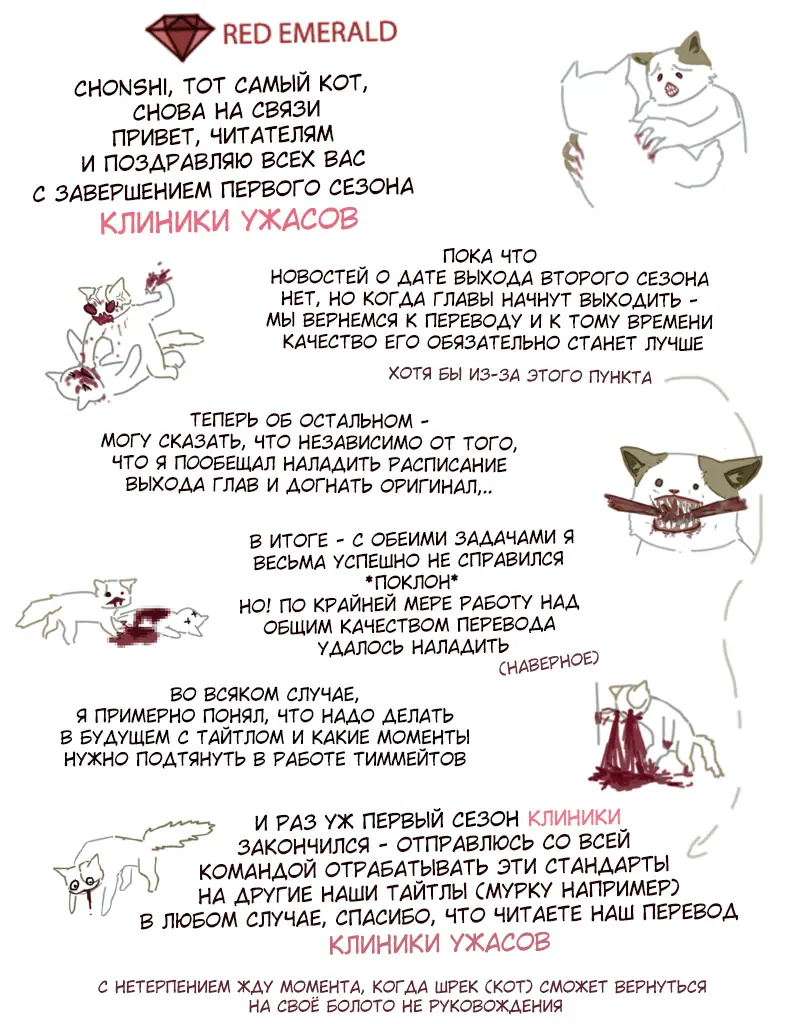 RED EMERALD
CHONSHI, ТОТ САМЫЙ КОТ,
СНОВА НА СВЯЗИ
ПРИВЕТ, ЧИТАТЕЛЯМ
И ПОЗДРАВЛЯЮ ВСЕХ ВАС
С ЗАВЕРШЕНИЕМ ПЕРВОГО СЕЗОНА
КЛИНИКИ УЖАСОВ
ПОКА ЧТО
НОВОСТЕЙ О ДАТЕ ВЫХОДА ВТОРОГО СЕЗОНА
НЕТ, НО КОГДА ГЛАВЫ НАЧНУТ ВЫХОДИТЬ -
МЫ ВЕРНЕМСЯ К ПЕРЕВОДУ И К ТОМУ ВРЕМЕНИ
КАЧЕСТВО ЕГО ОБЯЗАТЕЛЬНО СТАНЕТ ЛУЧШЕ
ХОТЯ БЫ ИЗ-ЗА ЭТОГО ПУНКТА
ТЕПЕРЬ ОБ ОСТАЛЬНОМ -
МОГУ СКАЗАТЬ, ЧТО НЕЗАВИСИМО ОТ ТОГО,
ЧТО Я ПООБЕЩАЛ НАЛАДИТЬ РАСПИСАНИЕ
ВЫХОДА ГЛАВ И ДОГНАТЬ ОРИГИНАЛ,..
В ИТОГЕ - С ОБЕИМИ ЗАДАЧАМИ Я
ВЕСЬМА УСПЕШНО НЕ СПРАВИЛСЯ
*ПОКЛОН*
НО! ПО КРАЙНЕЙ МЕРЕ РАБОТУ НАД
ОБЩИМ КАЧЕСТВОМ ПЕРЕВОДА
УДАЛОСЬ НАЛАДИТЬ
(НАВЕРНОЕ)
ВО ВСЯКОМ СЛУЧАЕ,
Я ПРИМЕРНО ПОНЯЛ, ЧТО НАДО ДЕЛАТЬ
В БУДУЩЕМ С ТАЙТЛОМ И КАКИЕ МОМЕНТЫ
НУЖНО ПОДТЯНУТЬ В РАБОТЕ ТИММЕЙТОВ
И РАЗ УЖ ПЕРВЫЙ СЕЗОН КЛИНИКИ
ЗАКОНЧИЛСЯ - ОТПРАВЛЮСЬ СО ВСЕЙ
КОМАНДОЙ ОТРАБАТЫВАТЬ ЭТИ СТАНДАРТЫ
НА ДРУГИЕ НАШИ ТАЙТЛЫ (МУРКУ НАПРИМЕР)
В ЛЮБОМ СЛУЧАЕ, СПАСИБО, ЧТО ЧИТАЕТЕ НАШ ПЕРЕВОД
КЛИНИКИ УЖАСОВ
С НЕТЕРПЕНИЕМ ЖДУ МОМЕНТА, КОГДА ШРЕК (КОТ) СМОЖЕТ ВЕРНУТЬСЯ
НА СВОЁ БОЛОТО НЕ РУКОВОЖДЕНИЯ